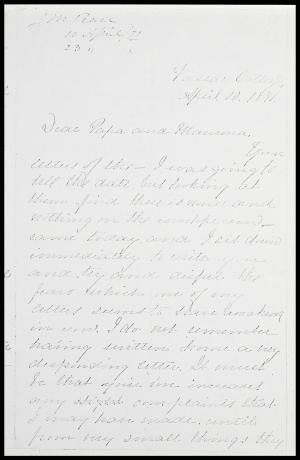 10 April /71
23 " "
Vassar College
April 10. 1871.
Dear Papa and Mamma,
Your
letters of the — I was going to
tell the date but looking at
them find there is none and
nothing on the
came today, and I sit down
immediately to write you
and try and dispel the
fears which one of my
letters seems to have awakened
in you. I do not remember
having written home a very
desponding letter. It must
be that you increase
any slight complaints that
I may have made, until
from very small things they